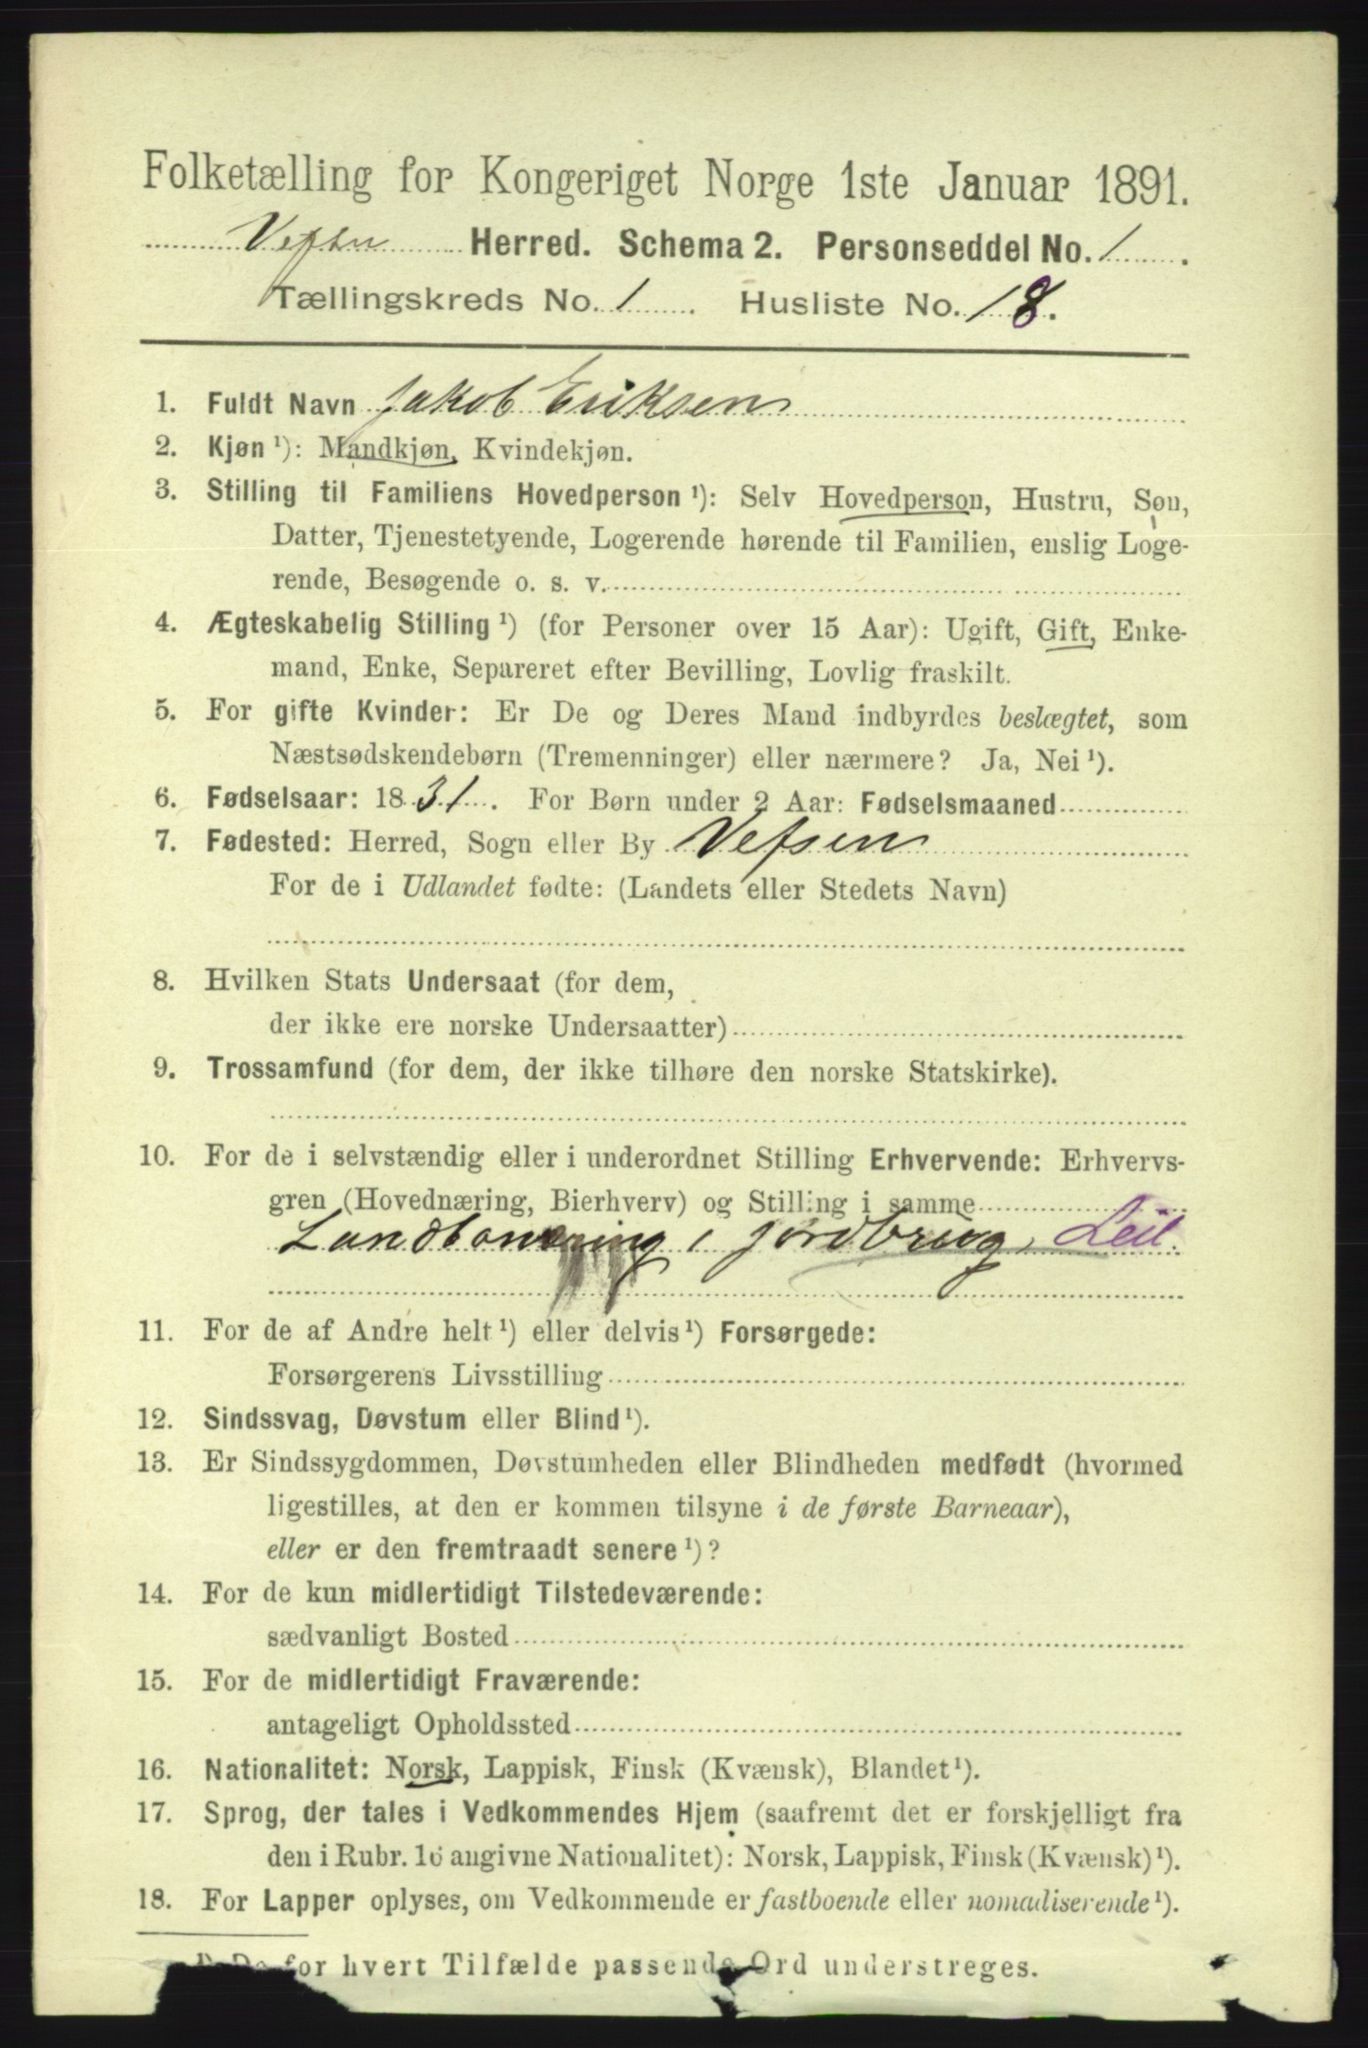 Folketælling for Kongeriget Norge 1ste Januar 1891.
Vefsn Herred. Schema 2. Personseddel No. 1.
Tællingskreds No. 1. Husliste No. 18.
1. Fuldt Navn Jakob Eriksen
2. Kjøn ¹): Mandkjøn, Kvindekjøn.
3. Stilling til Familiens Hovedperson ¹): Selv Hovedperson, Hustru, Søn,
Datter, Tjenestetyende, Logerende hørende til Familien, enslig Loge-
rende, Besøgende o. s. v.
4. Ægteskabelig Stilling ¹) (for Personer over 15 Aar): Ugift, Gift, Enke-
mand, Enke, Separeret efter Bevilling, Lovlig fraskilt.
5. For gifte Kvinder: Er De og Deres Mand indbyrdes beslægtet, som
Næstsødskendebørn (Tremenninger) eller nærmere? Ja, Nei ¹).
6. Fødselsaar: 1831. For Børn under 2 Aar: Fødselsmaaned
7. Fødested: Herred, Sogn eller By Vefsen
For de i Udlandet fødte: (Landets eller Stedets Navn)
8. Hvilken Stats Undersaat (for dem,
der ikke ere norske Undersaatter)
9. Trossamfund (for dem, der ikke tilhøre den norske Statskirke).
10. For de i selvstændig eller i underordnet Stilling Erhvervende: Erhvervs-
gren (Hovednæring, Bierhverv) og Stilling i samme
Landbonæring, jordbrug, Leil.
11. For de af Andre helt ¹) eller delvis ¹) Forsørgede:
Forsørgerens Livsstilling
12. Sindssvag, Døvstum eller Blind ¹).
13. Er Sindssygdommen, Døvstumheden eller Blindheden medfødt (hvormed
ligestilles, at den er kommen tilsyne i de første Barneaar),
eller er den fremtraadt senere ¹)?
14. For de kun midlertidigt Tilstedeværende:
sædvanligt Bosted
15. For de midlertidigt Fraværende:
antageligt Opholdssted
16. Nationalitet: Norsk, Lappisk, Finsk (Kvænsk), Blandet ¹).
17. Sprog, der tales i Vedkommendes Hjem (saafremt det er forskjelligt fra
den i Rubr. 16 angivne Nationalitet): Norsk, Lappisk, Finsk (Kvænsk) ¹).
18. For Lapper oplyses, om Vedkommende er fastboende eller nomadiserende ¹).
¹) De for hvert Tilfælde passende Ord understreges.